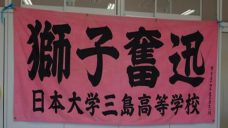 獅子奮迅
日本大学三島高等学校